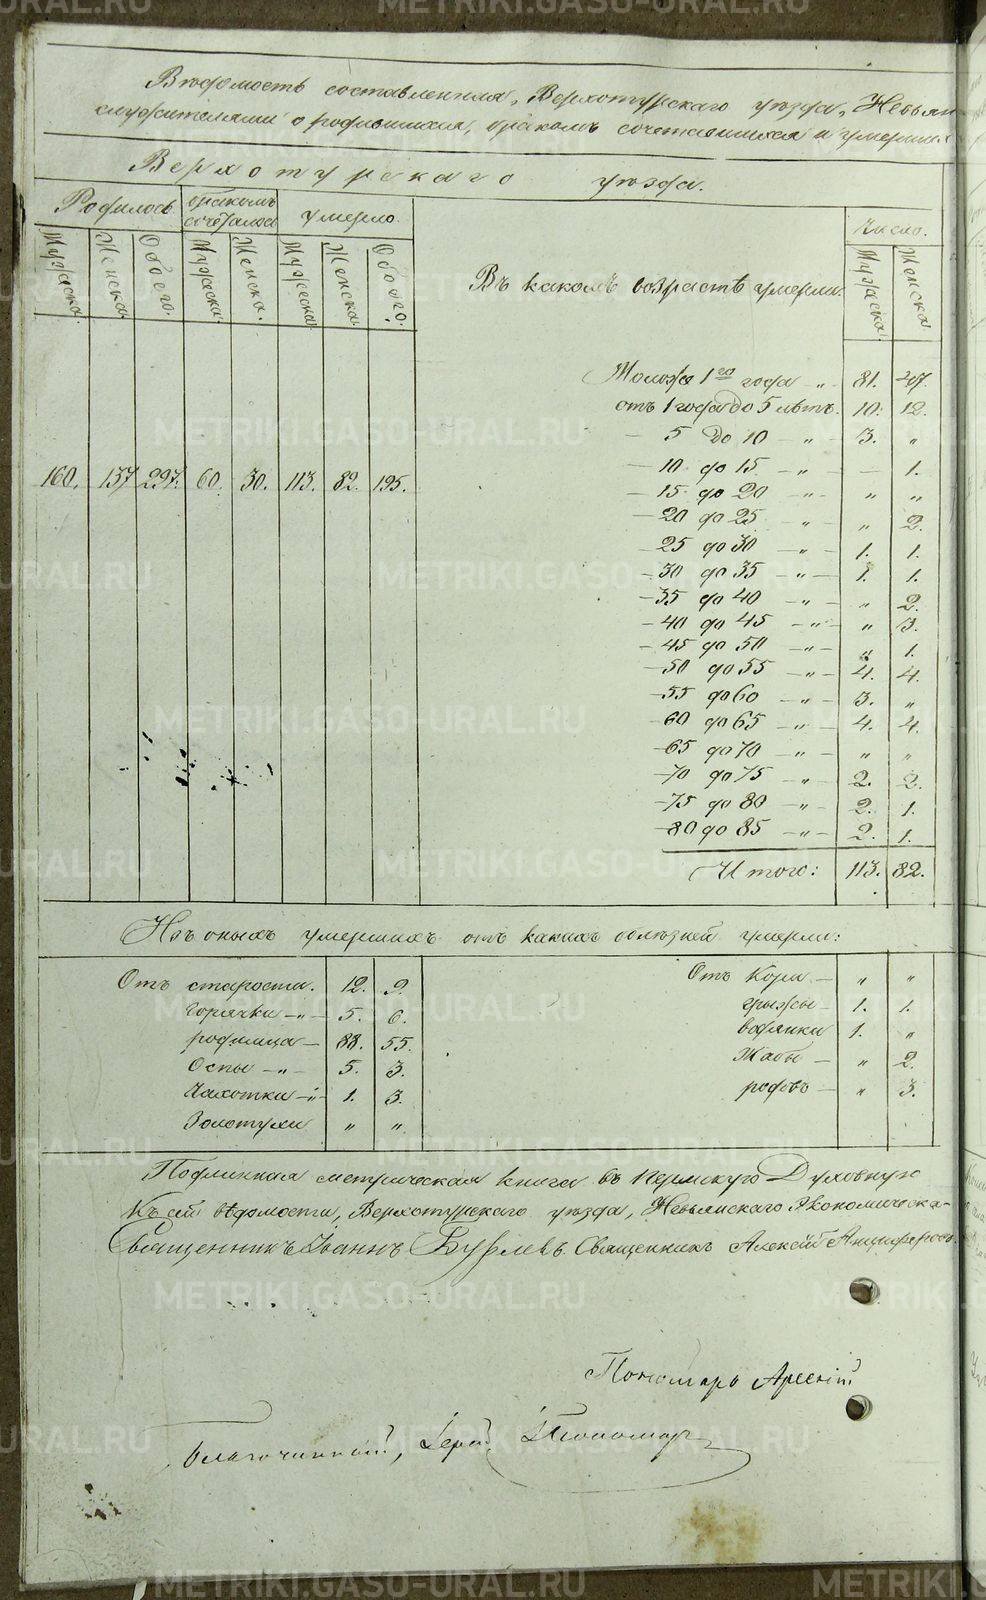 Вѣдомость составленная, Верхотурскаго уѣзда, Невьян
служителями о родившихся, бракомъ сочетавшихся и умерших
Верхотурскаго уѣзда.
Родилось. бракомъ сочеталось умерло. Число.
Мужеска. Женска. Обоего. Мужеска. Женска. Мужеска. Женска. Обоего. Въ какомъ возрастѣ умерли. Мужеска. Женска.
Моложе 1го года „ 81. 47.
отъ 1 года до 5 лѣтъ. 10. 12.
— 5 до 10 — „ — 3. „
— 10 до 15 — „ — — 1.
160. 137 297. 60. 30. 113. 82. 195.
— 15 до 20 — „ — „ „
— 20 до 25 — „ — „ 2.
— 25 до 30 — „ — 1. 1.
— 30 до 35 — „ — 1. 1.
— 35 до 40 — „ — „ 2.
— 40 до 45 — „ — „ 3.
— 45 до 50 — „ — „ 1.
— 50 до 55 — „ — 4. 4.
— 55 до 60 — „ — 3. „
— 60 до 65 — „ — 4. 4.
— 65 до 70 — „ — „ „
— 70 до 75 — „ — 2. 2.
— 75 до 80 — „ — 2. 1.
— 80 до 85 — „ — 2. 1.
Итого: 113. 82.
Изъ оныхъ умершихъ отъ какихъ болѣзней умерли:
Отъ старости. 12. 9. Отъ Кори — „ „
горячки — „ — 5. 6. грыжи — 1. 1.
родимца — 88. 55. водянки 1. „
Оспы — „ — 5. 3. Жабы — „ 2.
Чахотки — „ — 1. 3. родовъ — „ 3.
Золотухи „ „
Подлинная метрическая книга въ Пермскую Духовную
Къ сей вѣдомости, Верхотурскаго уѣзда, Невьянскаго Экономическа-
Священникъ Іоаннъ Бурлевъ. Священникъ Алексій Анциферовъ.
Пономарь Арсеній
Благочинный, Іерей
METRIKI.GASO-URAL.RU